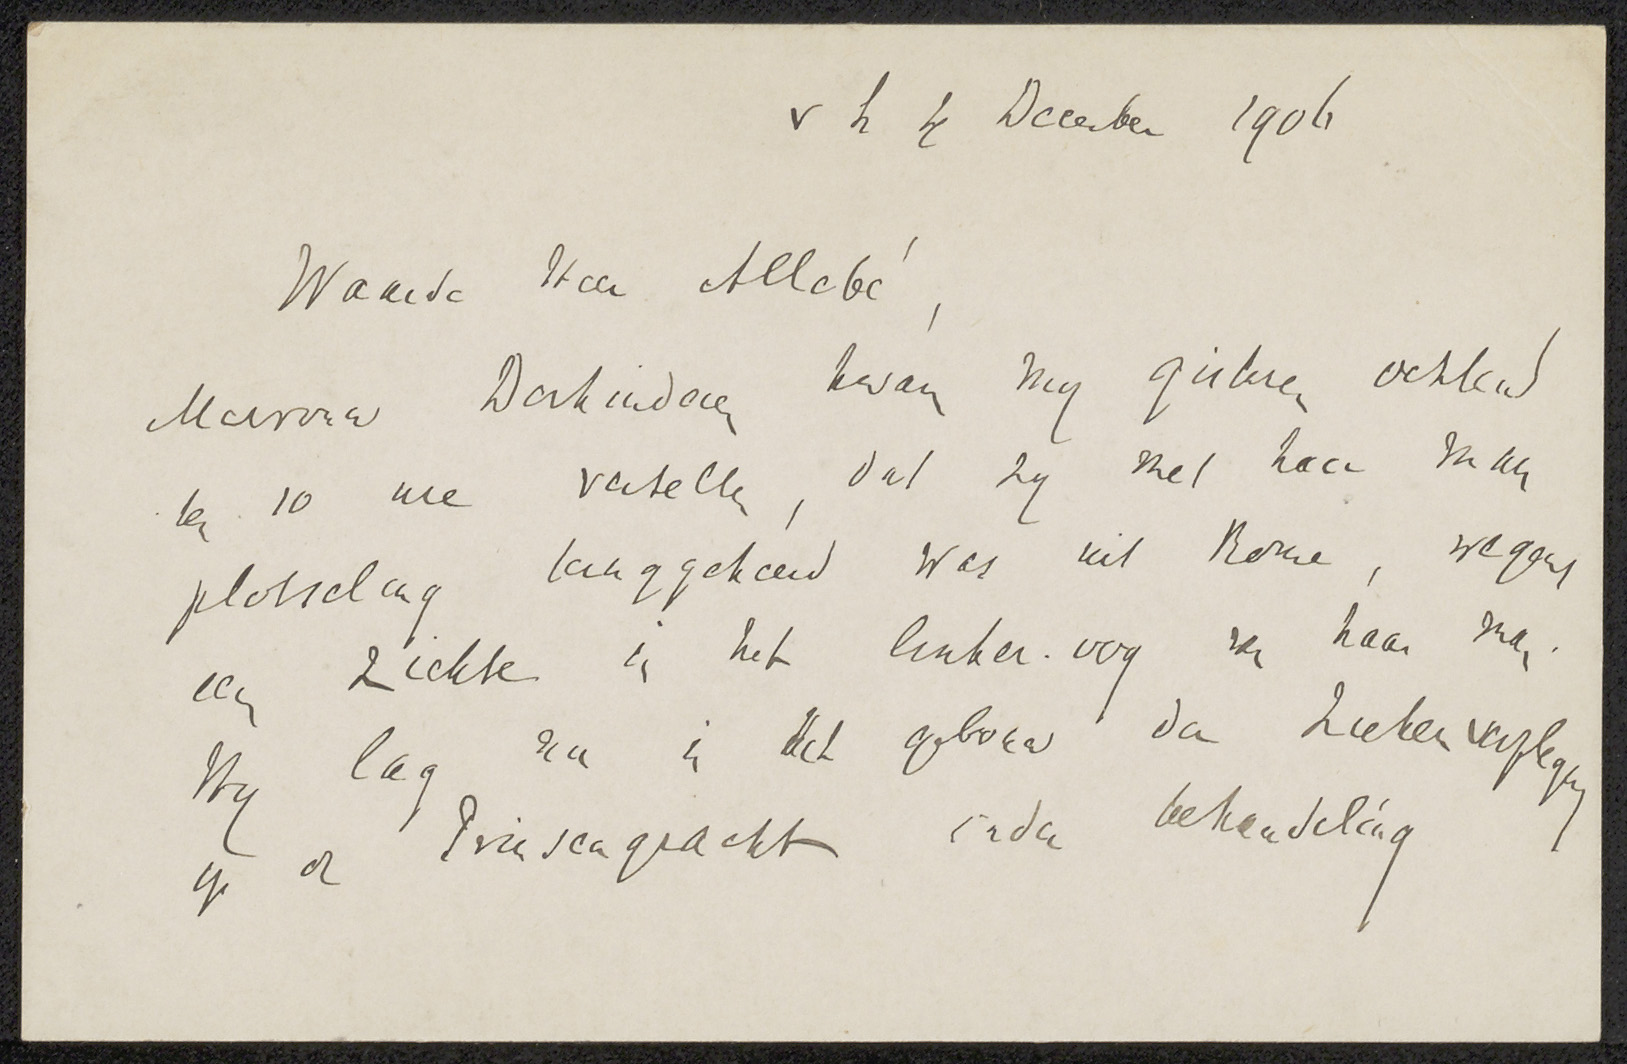 v h 4 December 1906
Waarde Heer Allebé,
Mevrouw Derkinderen kwam my gisteren ochtend
ten 10 ure vertellen, dat zy met haar man
plotseling teruggekeerd was uit Rome, wegens
een ziekte in het linker-oog van haar man.
Hy lag nu in het gebouw der Ziekenverpleging
op de Prinsengracht onder behandeling